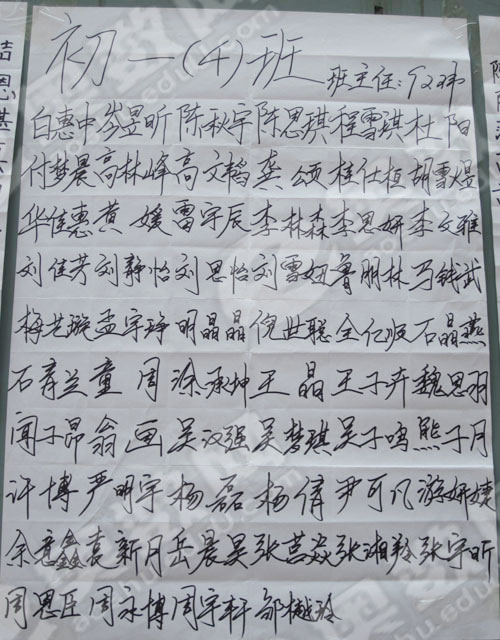 初一(4)班
班主任:
白惠中 岑昱昕 陈秋宇 陈思琪 程雪琪 杜阳
付梦晨 高林峰 高文韬 龚颂 桂仕桓 胡雪煜
华佳惠 黄媛 雷宇辰 李林森 李思妍 李文雅
刘佳芳 刘静怡 刘思怡 刘雪妞 鲁朋林 马钱武
梅芷璇 孟宇琤 明晶晶 倪世聪 全仁顺 石晶燕
石育兰 童周 涂承坤 王晶 王子卉 魏思羽
闻子昂 翁画 吴汉强 吴梦琪 吴子鸣 熊子月
许博 严明宇 杨磊 杨倩 尹可凡 游妍婕
余意鑫 袁新月 岳晨昊 张燕焱 张湘羚 张宇昕
周思臣 周永博 周宇轩 邹樾玲